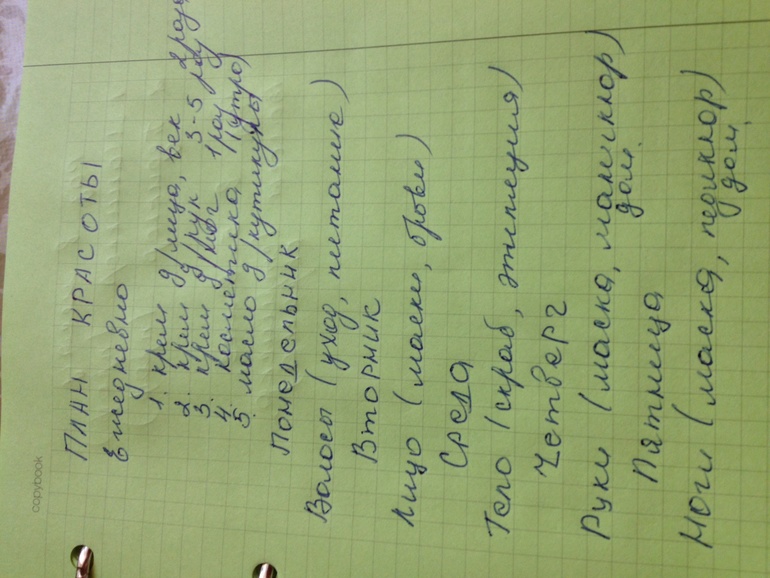 copybook
ПЛАН КРАСОТЫ
Ежедневно
1. крем д/лица, век 2 раза
2. крем д/рук 3-5 раз
3. крем д/ног 1 раз
4. косметика (утро)
5. масло д/кутикулы
Понедельник
Волосы (уход, питание)
Вторник
Лицо (маски, брови)
Среда
Тело (скраб, эпиляция)
Четверг
Руки (маска, маникюр)
дом.
Пятница
Ноги (маска, педикюр)
дом.